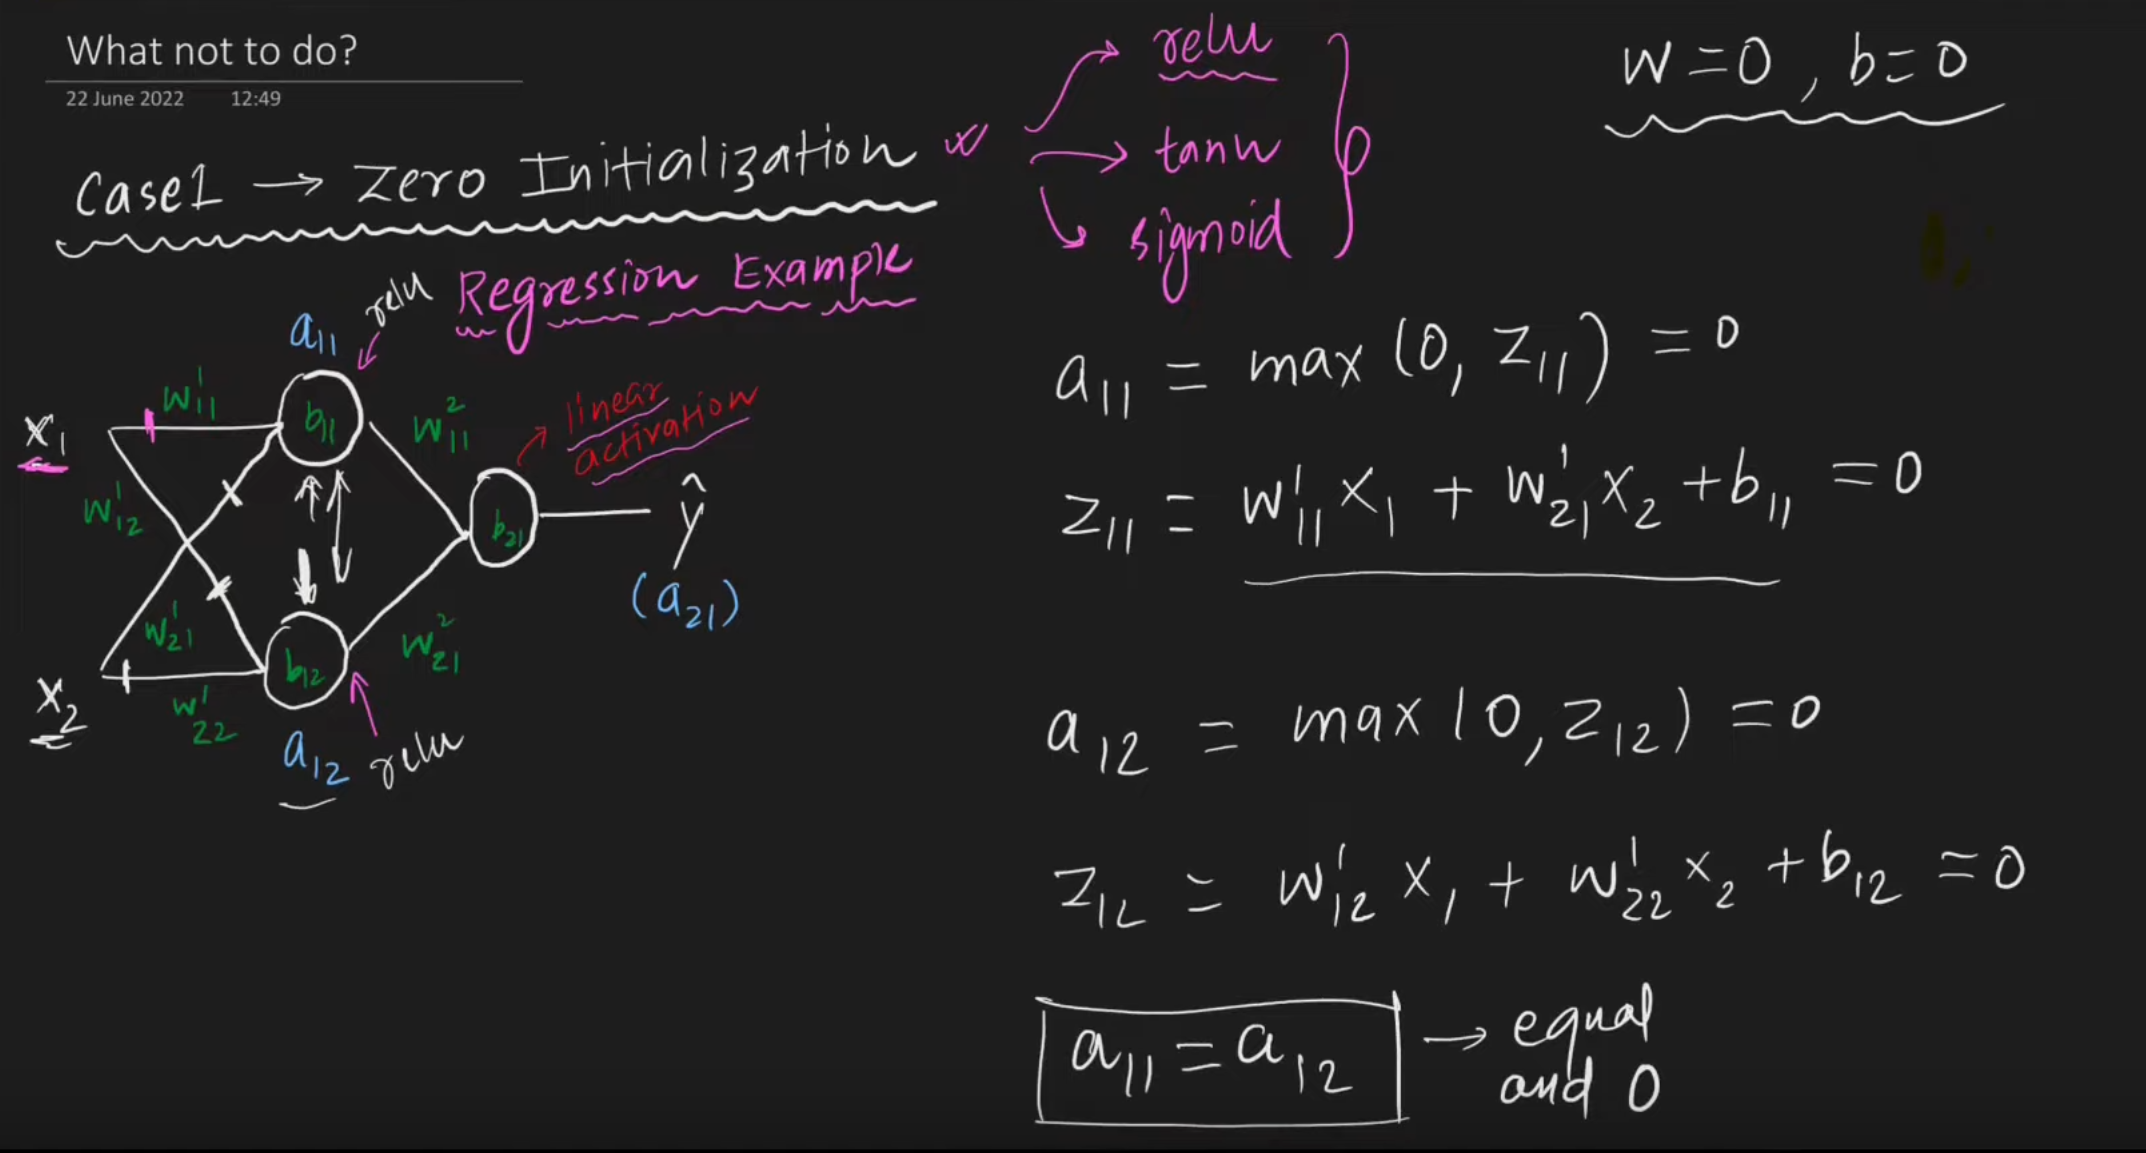 What not to do?
22 June 2022 12:49
Case1 → Zero Initialization
relu
tanh
sigmoid
w = 0 , b = 0
Regression Example
relu
a11
w¹11
b11
w²11
linear
activation
x1
w¹12
b21
ŷ
(a21)
w¹21
w²21
x2
b12
w¹22
a12
relu
a11 = max (0, z11) = 0
z11 = w¹11 x1 + w¹21 x2 + b11 = 0
a12 = max (0, z12) = 0
z12 = w¹12 x1 + w¹22 x2 + b12 = 0
a11 = a12 → equal
and 0